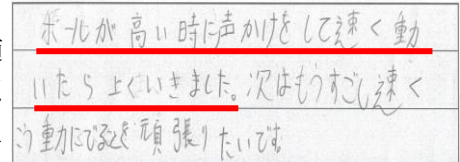 ボールが高い時に声かけをして速く動
いたら上くいきました。次はもうすごし速く
こう動にでることを頑張りたいです。